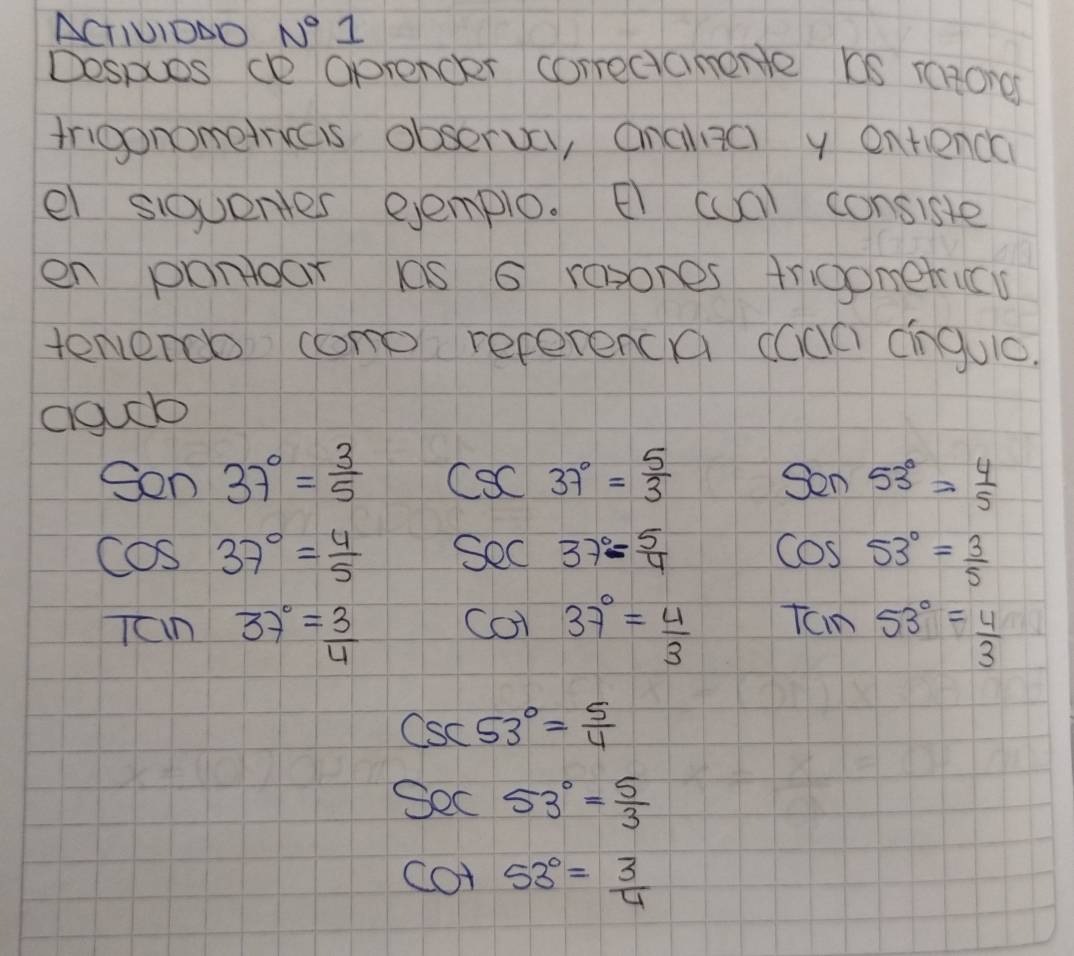 ACTIVIDAD N° 1
Despues de aprender correctamente las razones
trigonometricas observa, analiza y entienda
el siguentes ejemplo. El cual consiste
en plantear las 6 rasones trigometricas
teniendo como referencia cada ángulo.
agudo
Sen 37° = 3/5 CSC 37° = 5/3 Sen 53° = 4/5
Cos 37° = 4/5 Sec 37° = 5/4 Cos 53° = 3/5
Tan 37° = 3/4 Cot 37° = 4/3 Tan 53° = 4/3
CSC 53° = 5/4
Sec 53° = 5/3
Cot 53° = 3/4